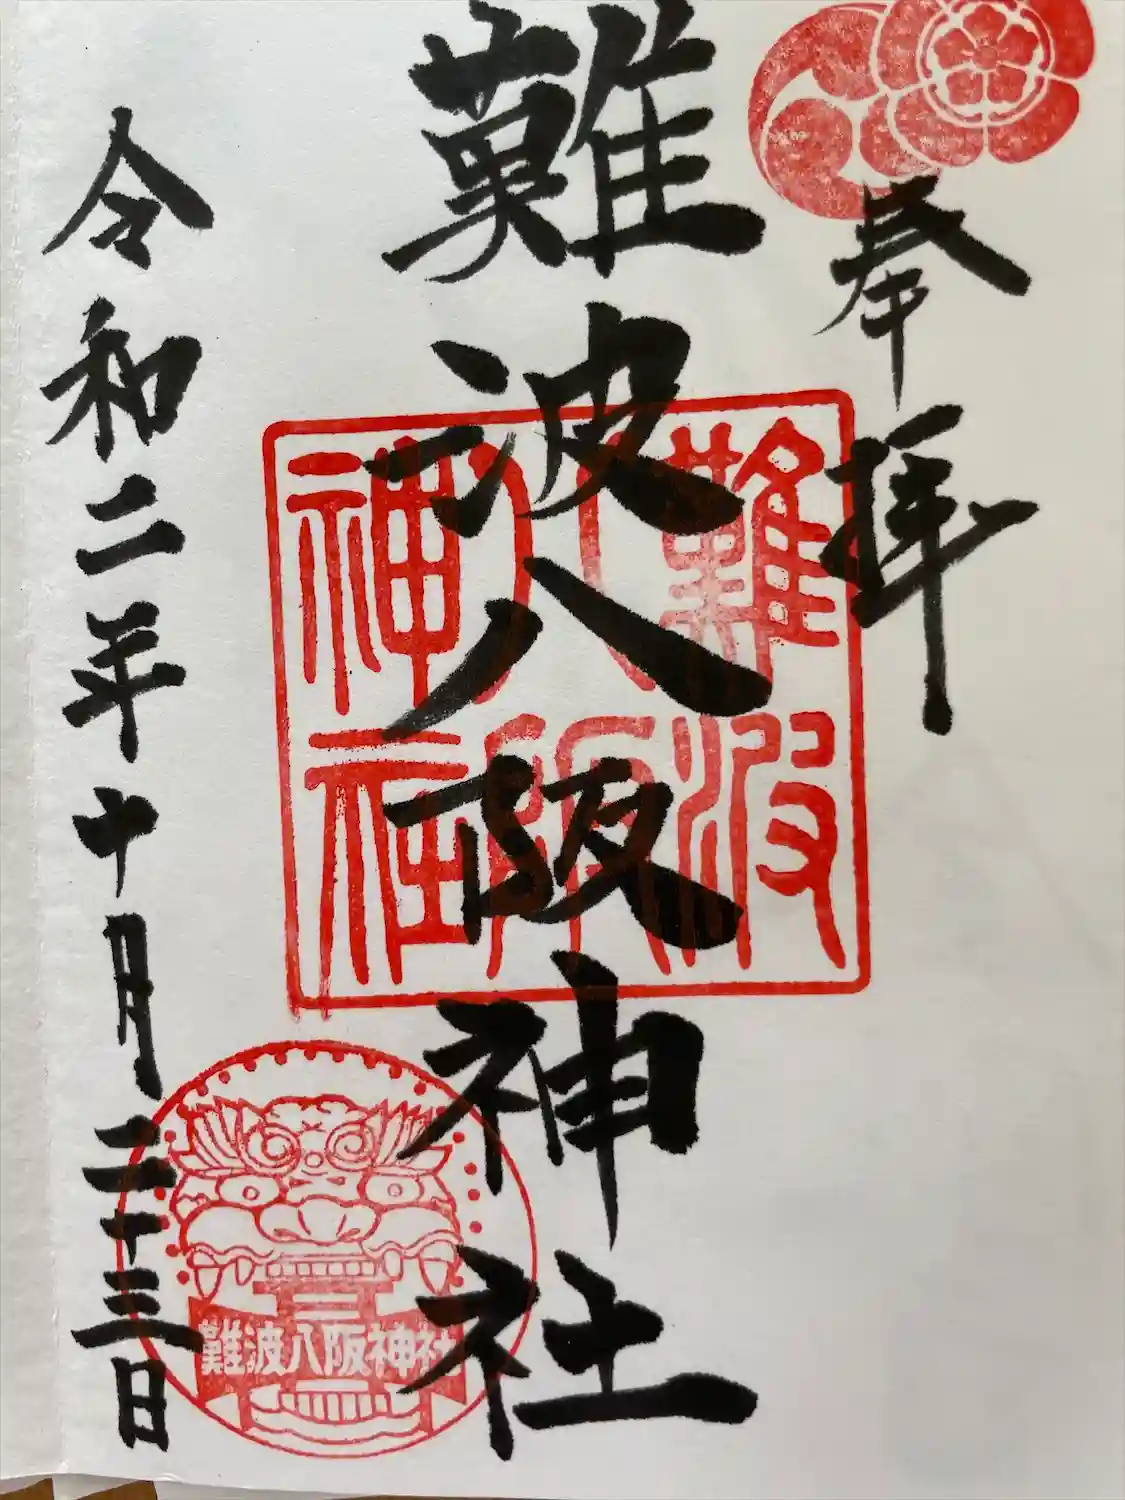 奉拝
難波八阪神社
難波
八阪
神社
令和二年十月二十三日
難波八阪神社